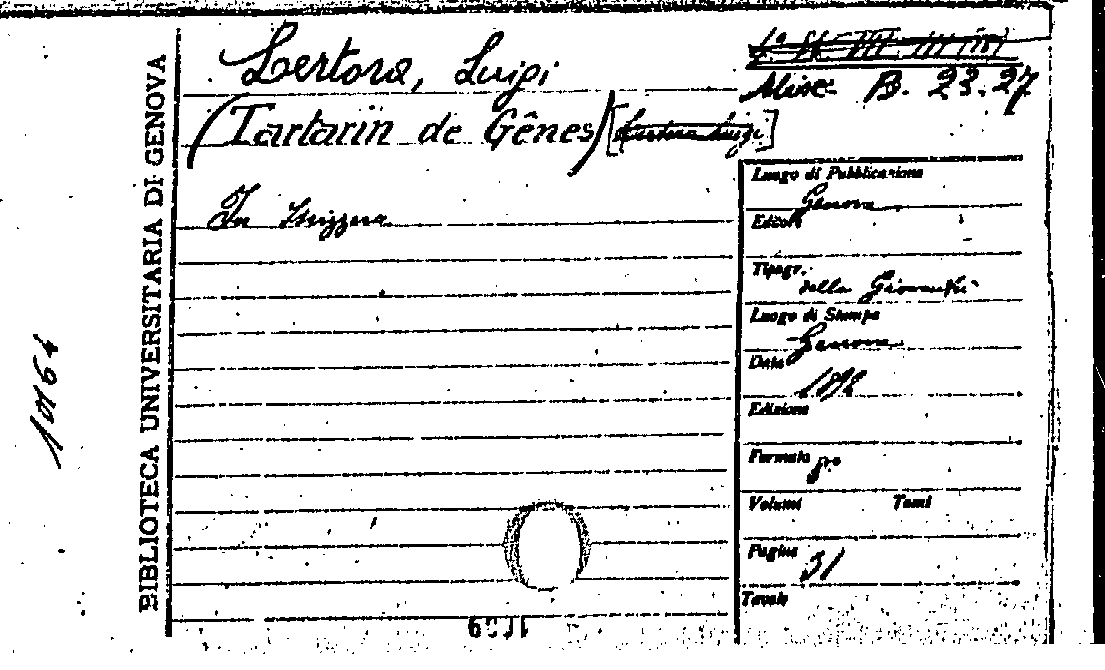 BIBLIOTECA UNIVERSITARIA DI GENOVA
10164
Lertora, Luigi
(Tartarin de Gênes) [Lertora Luigi]
In Svizzera
Misc. B. 23.27
Luogo di Pubblicazione
Genova
Editore
Tipogr.
della Gioventù
Luogo di Stampa
Genova
Data
Edizione
Formato 8°
Volumi Tomi
Pagine 31
Tavole